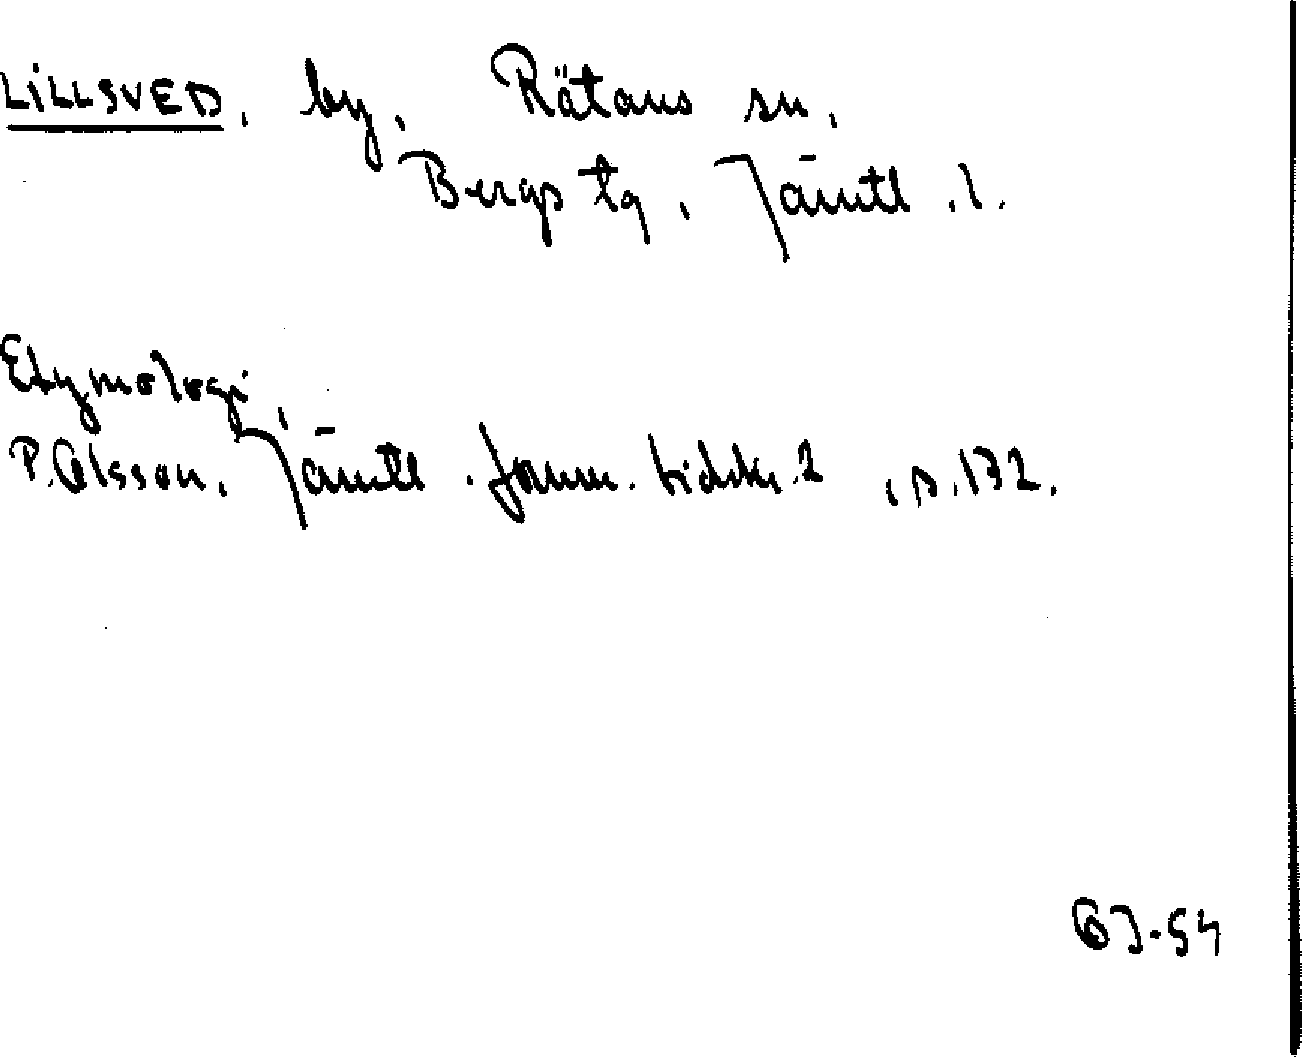 LILLSVED, by, Rätans sn,
Bergs tg, Jämtl. l.
Etymologi,
P. Olsson, Jämtl. fornm. tidskr. 2, s. 132.
OJ-54